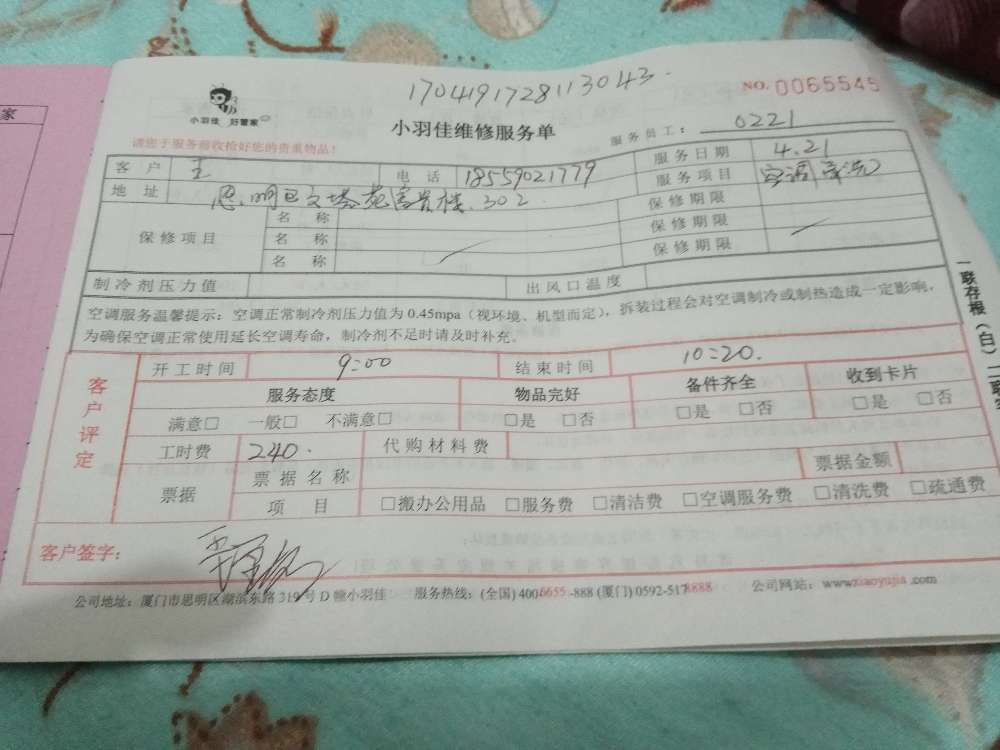 家
1704191728113043.
NO.0065545
小羽佳 好管家
小羽佳维修服务单
服务员工： 0221
请您于服务前收捡好您的贵重物品！
客户 王 电话 18559021779 服务日期 4.21
地址 思明区文塔花富贵楼.302 服务项目 空调清洗
保修项目
名称 保修期限
名称 保修期限
名称 保修期限
制冷剂压力值 出风口温度
空调服务温馨提示：空调正常制冷剂压力值为 0.45mpa（视环境、机型而定），拆装过程会对空调制冷或制热造成一定影响，
为确保空调正常使用延长空调寿命，制冷剂不足时请及时补充。
一联存根（白）二联
客户评定
开工时间 9:00 结束时间 10:20.
服务态度 物品完好 备件齐全 收到卡片
满意□ 一般□ 不满意□ □是 □否 □是 □否 □是 □否
工时费 240. 代购材料费
票据 票据名称 票据金额
项目 □搬办公用品 □服务费 □清洁费 □空调服务费 □清洗费 □疏通费
客户签字：
公司地址：厦门市思明区湖滨东路 319 号 D 幢小羽佳 服务热线：(全国) 4006655-888 (厦门) 0592-5178888 公司网站：www.xiaoyujia.com